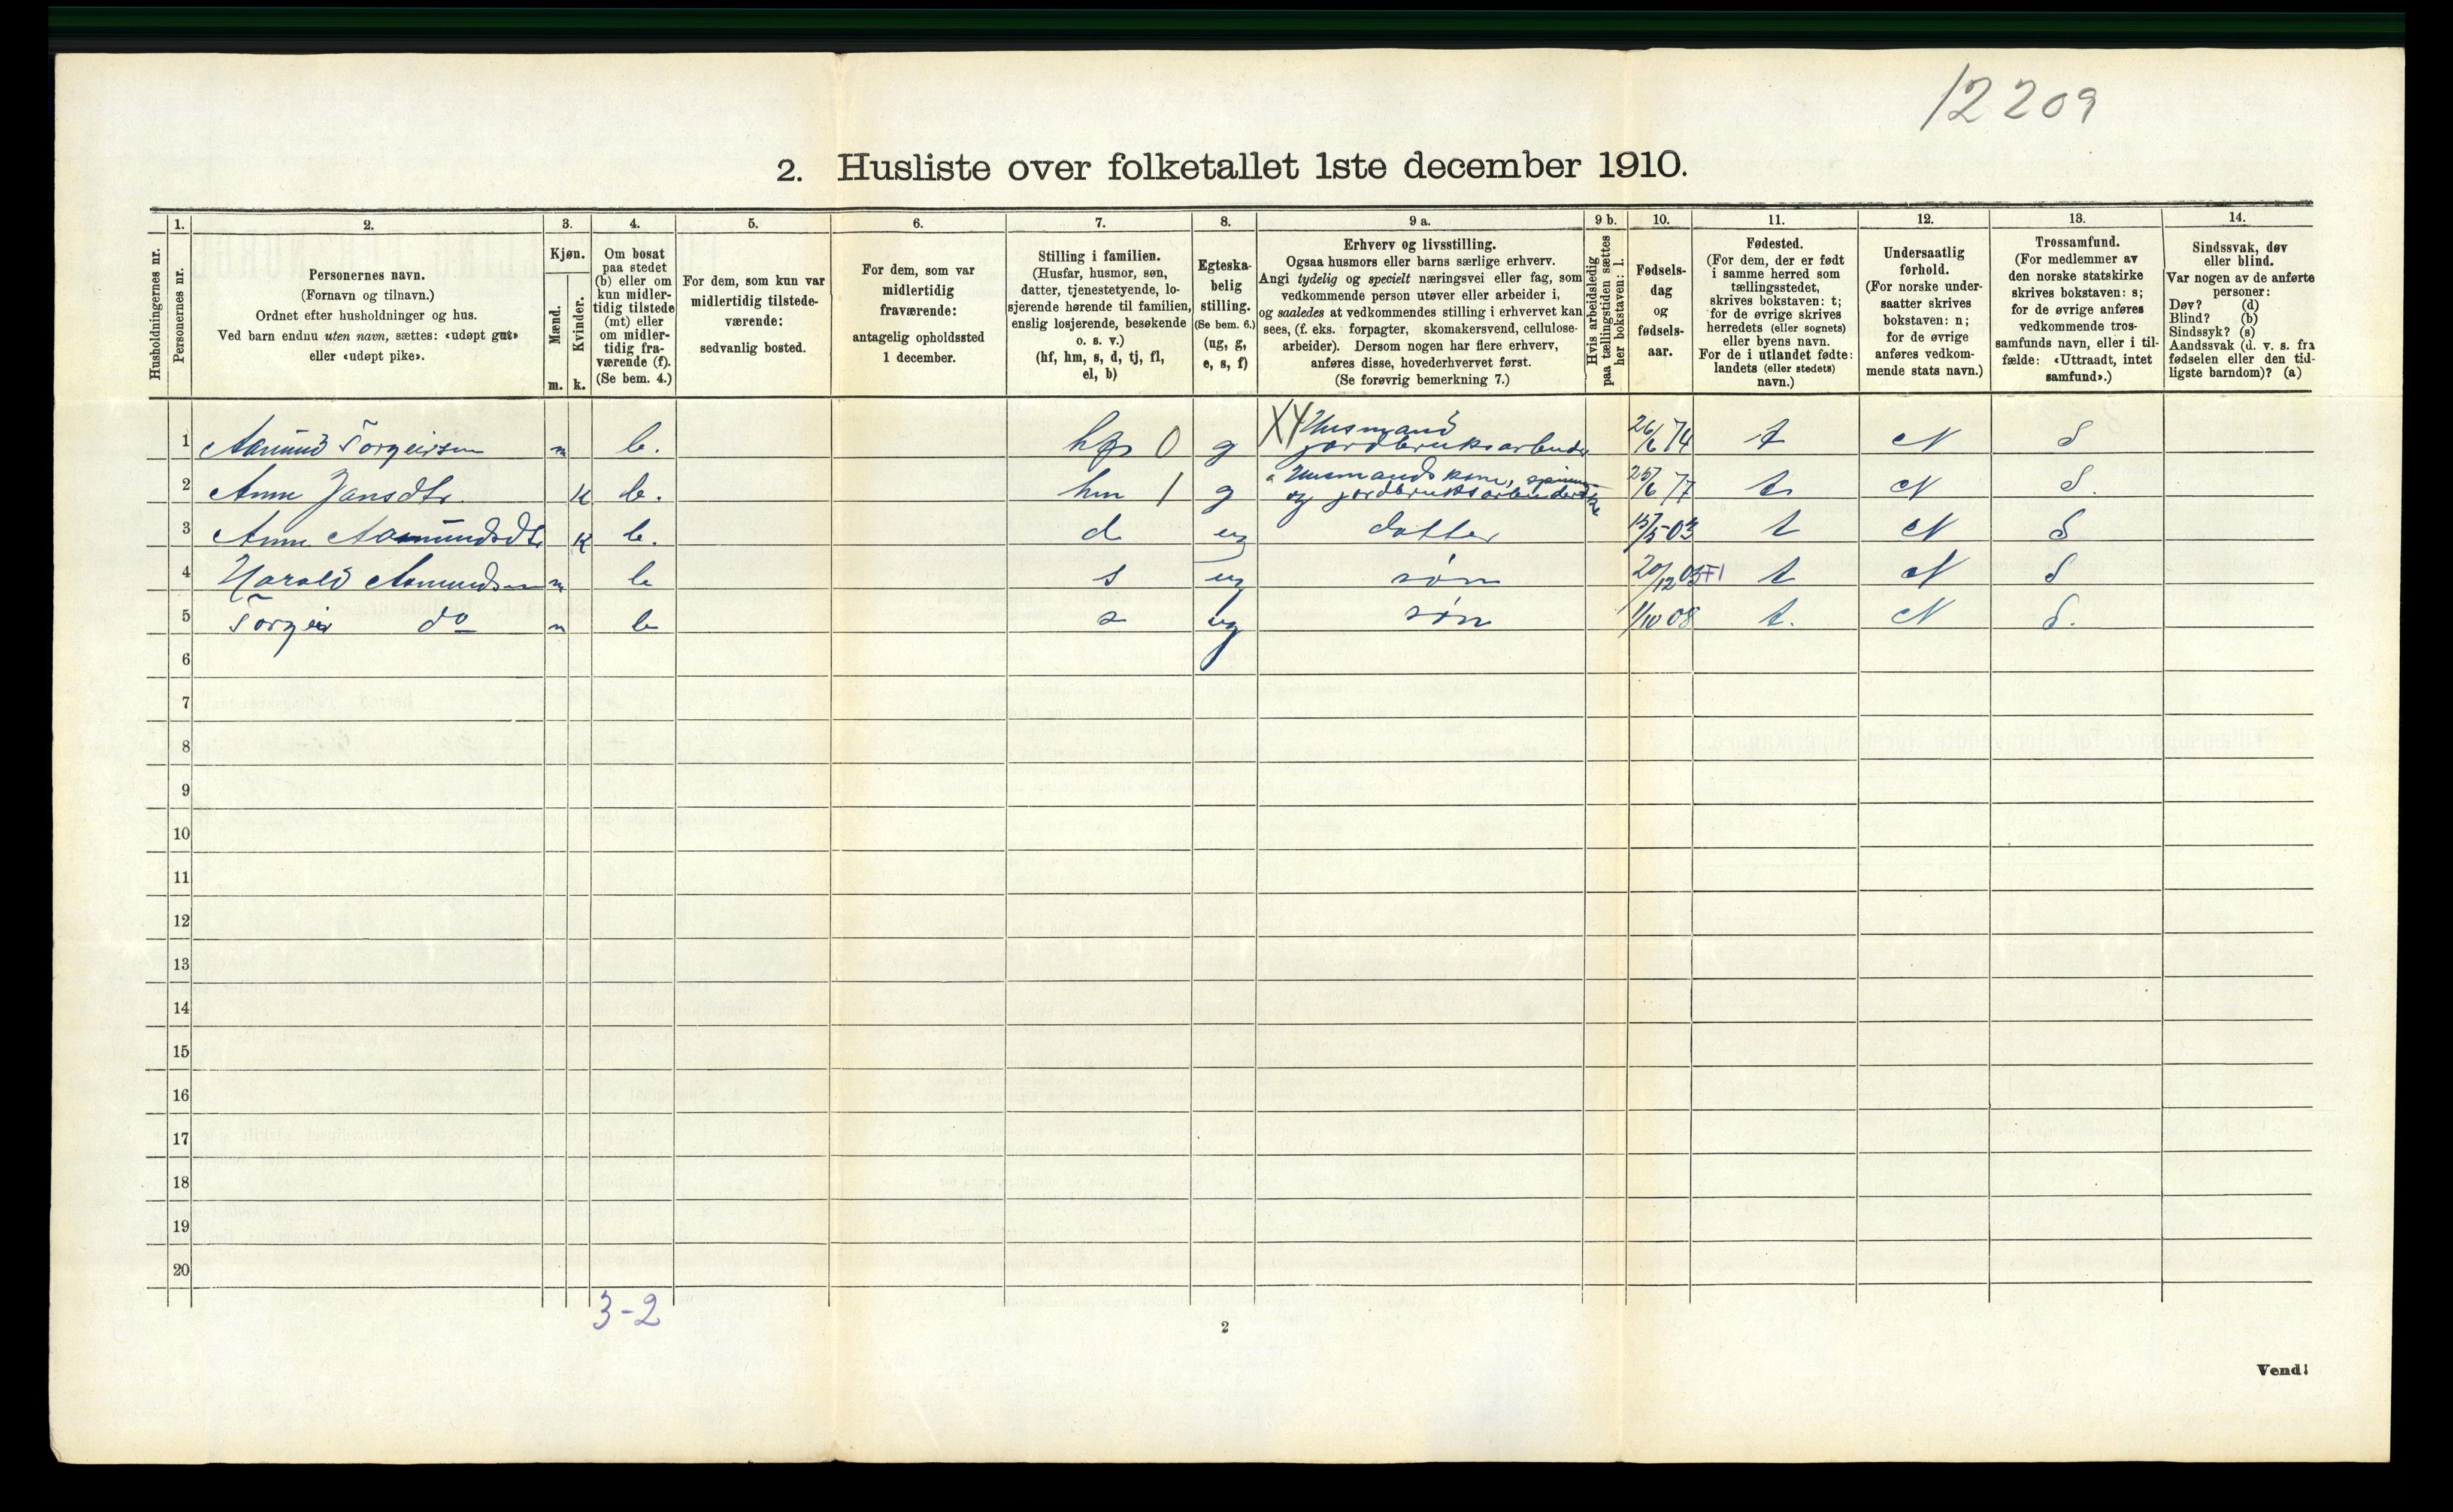 12209
2. Husliste over folketallet 1ste december 1910.
Husholdningernes nr.
1.
Personernes nr.
2.
Personernes navn.
(Fornavn og tilnavn.)
Ordnet efter husholdninger og hus.
Ved barn endnu uten navn, sættes: «udøpt gut»
eller «udøpt pike».
3.
Kjøn.
Mænd.
m.
Kvinder.
k.
4.
Om bosat
paa stedet
(b) eller om
kun midler-
tidig tilstede
(mt) eller
om midler-
tidig fra-
værende (f).
(Se bem. 4.)
5.
For dem, som kun var
midlertidig tilstede-
værende:
sedvanlig bosted.
6.
For dem, som var
midlertidig
fraværende:
antagelig opholdssted
1 december.
7.
Stilling i familien.
(Husfar, husmor, søn,
datter, tjenestetyende, lo-
sjerende hørende til familien,
enslig losjerende, besøkende
o. s. v.)
(hf, hm, s, d, tj, fl,
el, b)
8.
Egteska-
belig
stilling.
(Se bem. 6.)
(ug, g,
e, s, f)
9 a.
Erhverv og livsstilling.
Ogsaa husmors eller barns særlige erhverv.
Angi tydelig og specielt næringsvei eller fag, som
vedkommende person utøver eller arbeider i,
og saaledes at vedkommendes stilling i erhvervet kan
sees, (f. eks. forpagter, skomakersvend, cellulose-
arbeider). Dersom nogen har flere erhverv,
anføres disse, hovederhvervet først.
(Se forøvrig bemerkning 7.)
9 b.
Hvis arbeidsledig
paa tællingstiden sættes
her bokstaven: l.
10.
Fødsels-
dag
og
fødsels-
aar.
11.
Fødested.
(For dem, der er født
i samme herred som
tællingsstedet,
skrives bokstaven: t;
for de øvrige skrives
herredets (eller sognets)
eller byens navn.
For de i utlandet fødte:
landets (eller stedets)
navn.)
12.
Undersaatlig
forhold.
(For norske under-
saatter skrives
bokstaven: n;
for de øvrige
anføres vedkom-
mende stats navn.)
13.
Trossamfund.
(For medlemmer av
den norske statskirke
skrives bokstaven: s;
for de øvrige anføres
vedkommende tros-
samfunds navn, eller i til-
fælde: «Uttraadt, intet
samfund».)
14.
Sindssvak, døv
eller blind.
Var nogen av de anførte
personer:
Døv? (d)
Blind? (b)
Sindssyk? (s)
Aandssvak (d. v. s. fra
fødselen eller den tid-
ligste barndom)? (a)
1 Aamund Torgeirsen m b. hf 0 g X4 Husmand jordbruksarbeider 26/6 74 t N S
2 Anne Jansdtr. K b. hm 1 g Husmandskone, og jordbruksarbeiderske 25/6 77 t N S.
3 Anne Aamundsdtr K b. d ug datter 15/5-03 t N S
4 Harald Aamundsen m b s ug søn 20/12 05 t N S
5 Torgeir do m b s ug søn 1/10 08 t. N S.
6
7
8
9
10
11
12
13
14
15
16
17
18
19
20
3-2
2
Vend!